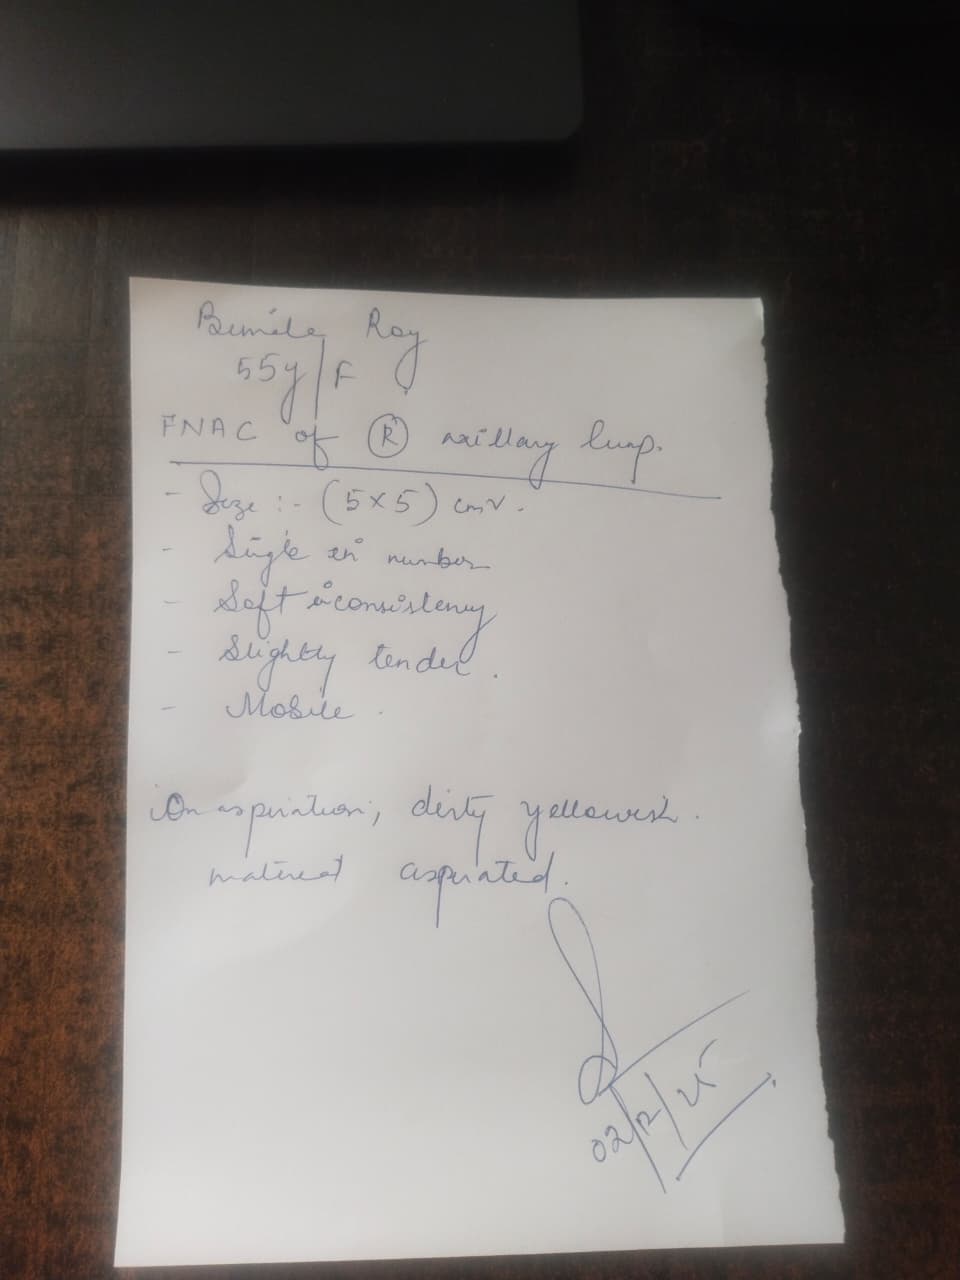 Bimila Roy
55y/F
FNAC of (R) axillary lump.
- Size :- (5×5) cm².
- Single in number
- Soft in consistency
- Slightly tender.
- Mobile.
On aspiration, dirty yellowish
material aspirated.
02/12/25